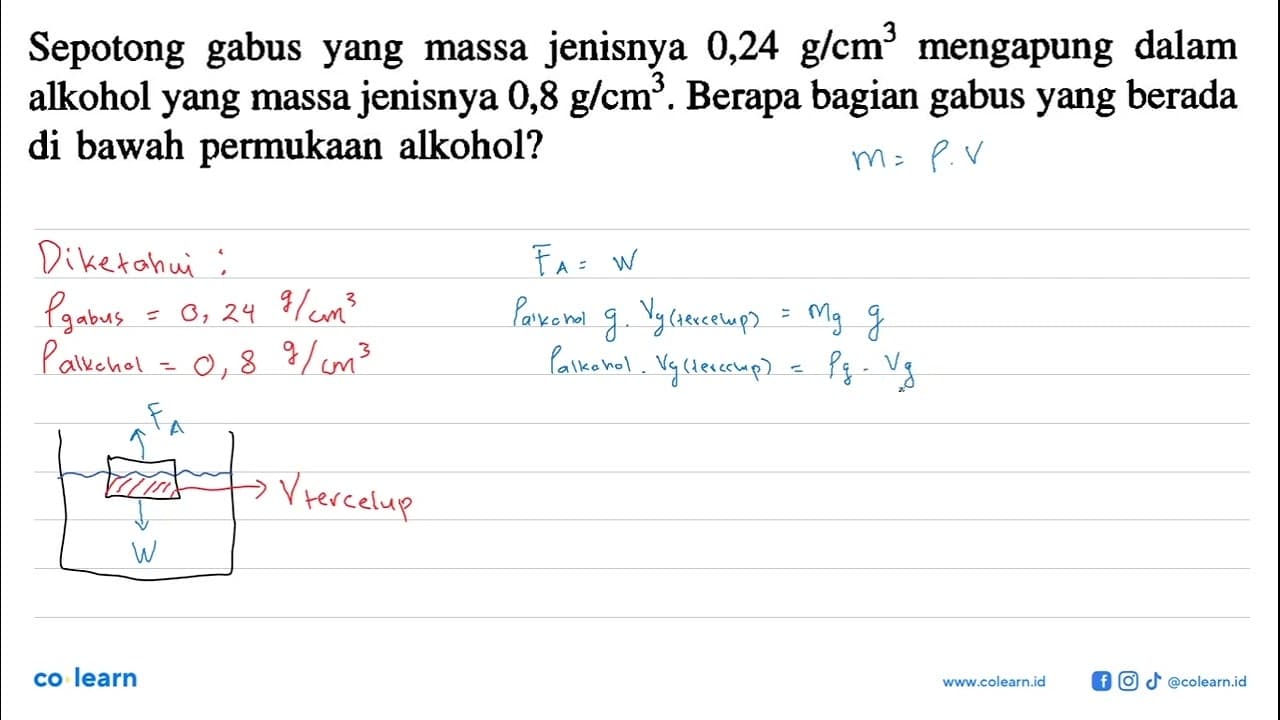 Sepotong gabus yang massa jenisnya 0,24 g/cm³ mengapung dalam
alkohol yang massa jenisnya 0,8 g/cm³. Berapa bagian gabus yang berada
di bawah permukaan alkohol?
m = ρ . V
Diketahui :
ρgabus = 0,24 g/cm³
ρalkohol = 0,8 g/cm³
FA = W
ρalkohol g . Vg(tercelup) = mg g
ρalkohol . Vg(tercelup) = ρg . Vg
FA
Vtercelup
W
co learn
www.colearn.id
@colearn.id